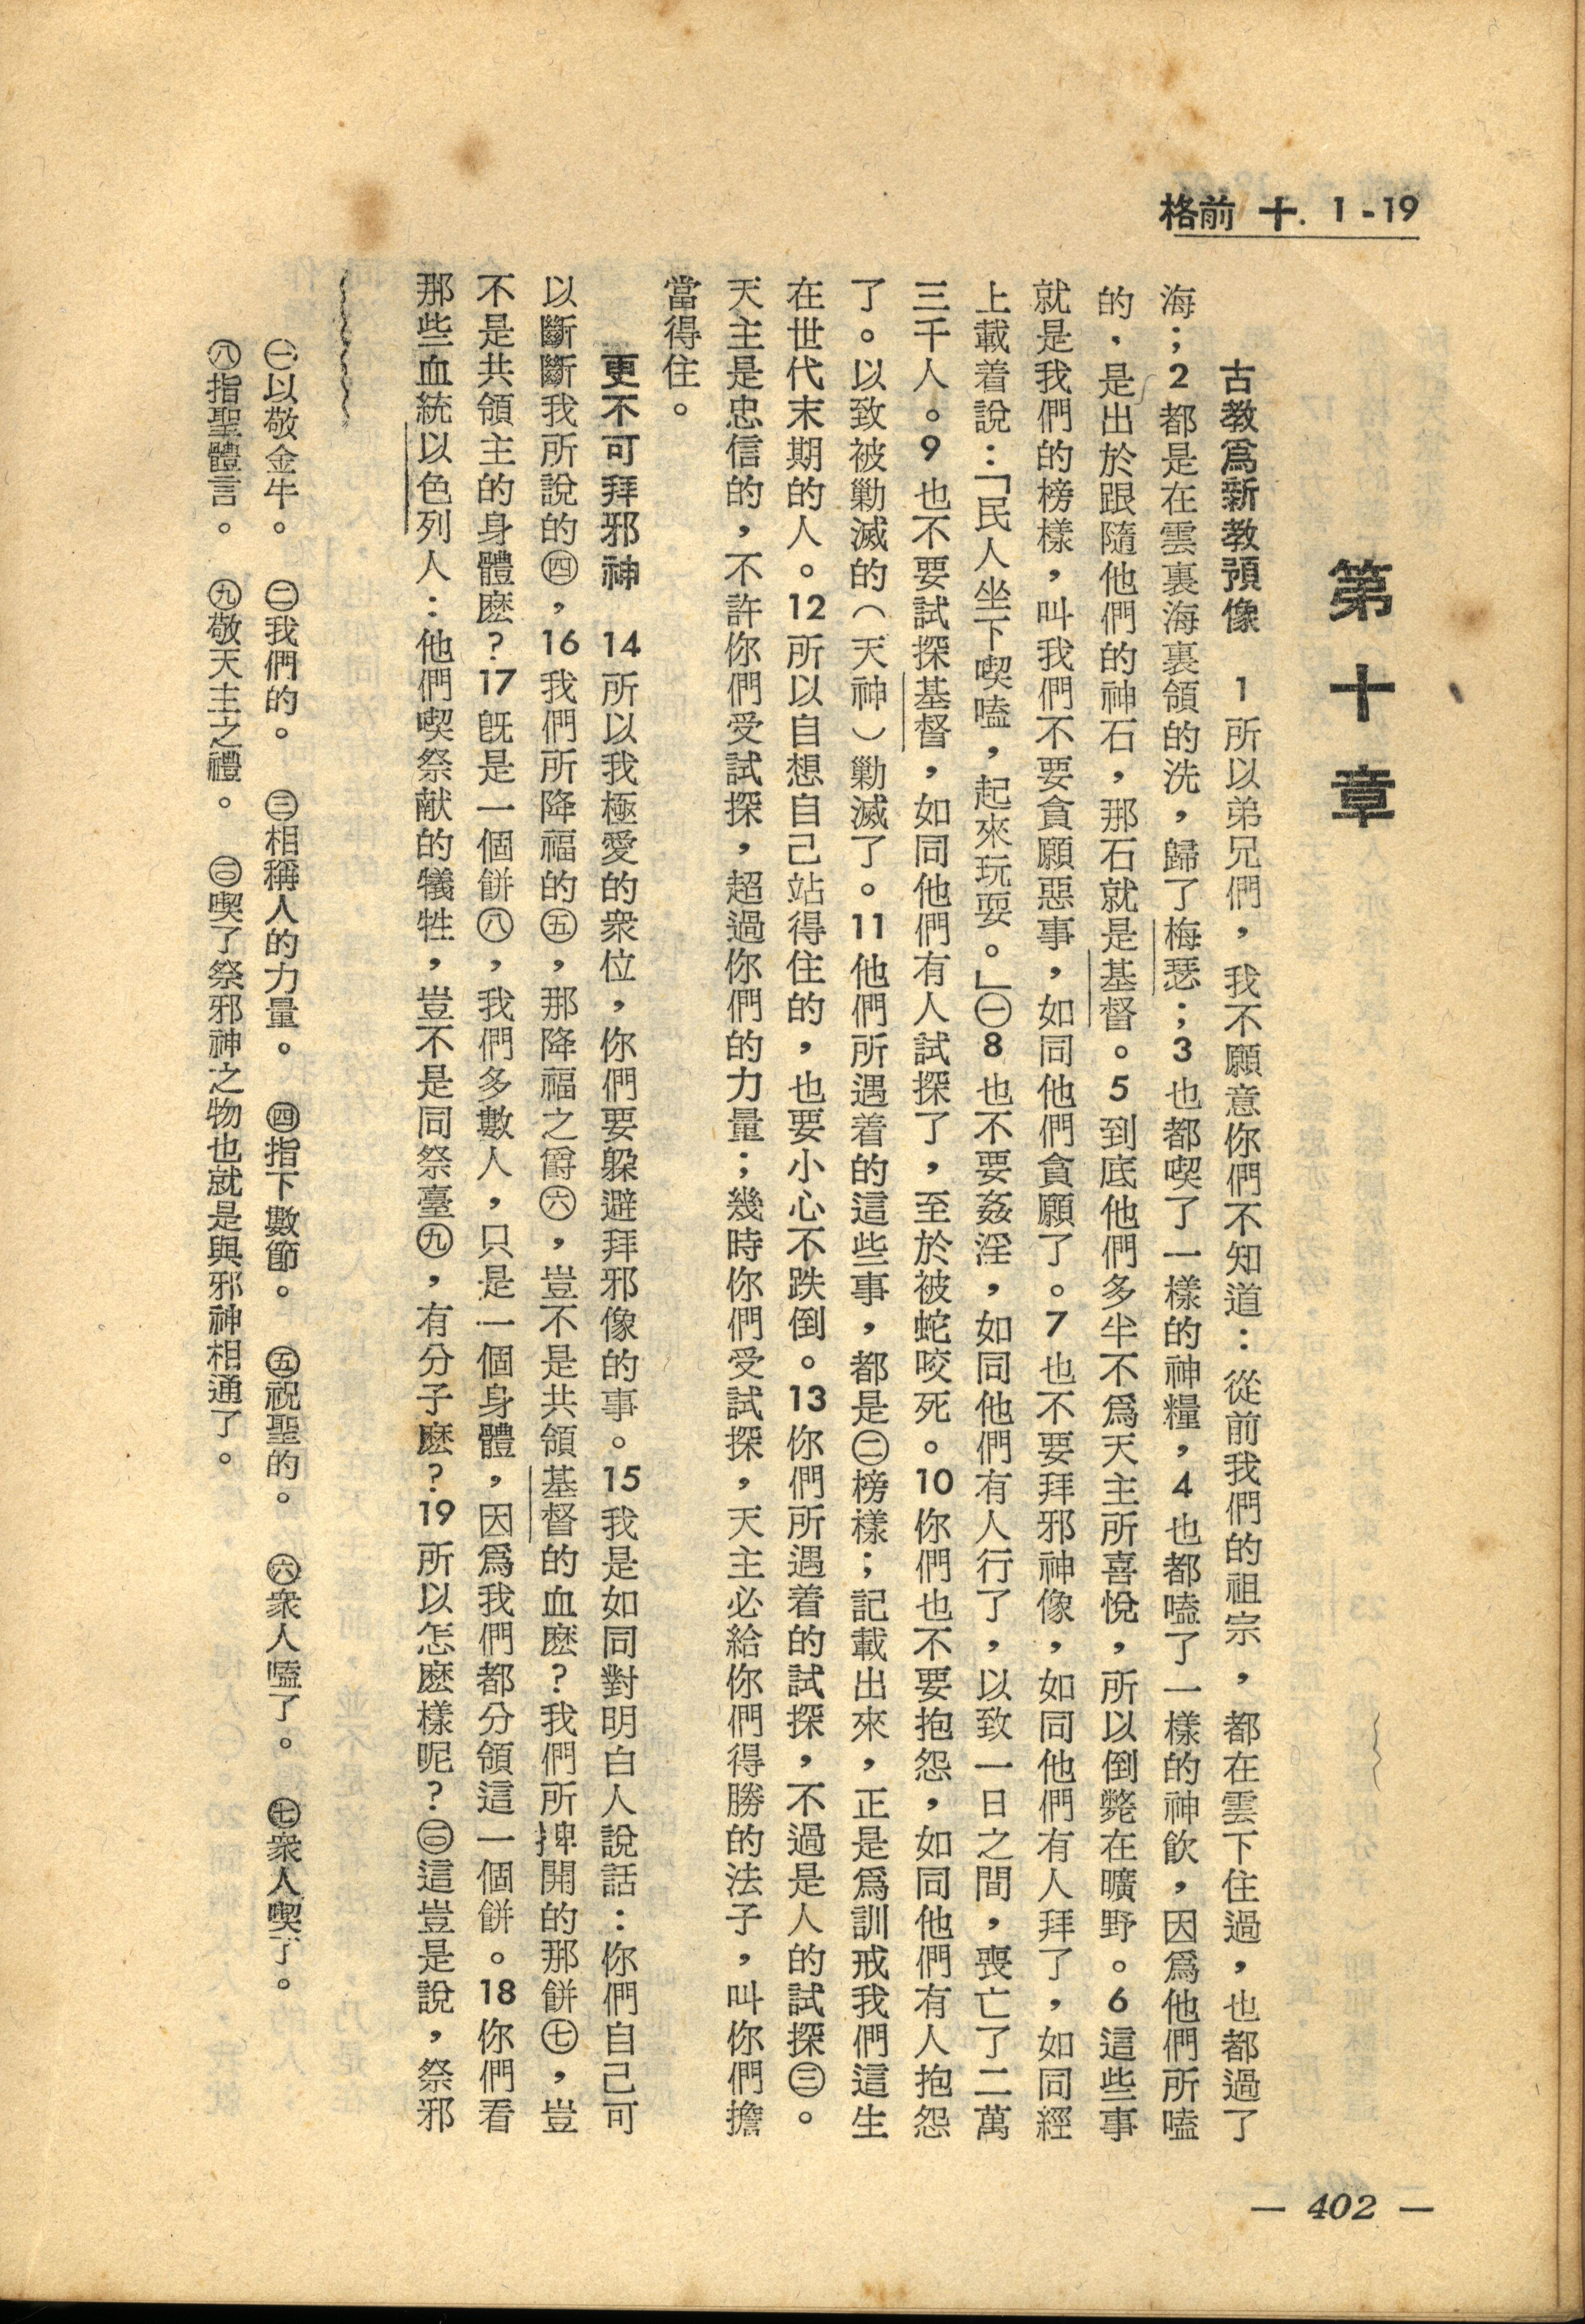 格前 十. 1-19
第十章
古教爲新教預像 1 所以弟兄們，我不願意你們不知道：從前我們的祖宗，都在雲下住過，也都過了
海；2 都是在雲裏海裏領的洗，歸了梅瑟；3 也都喫了一樣的神糧，4 也都嗑了一樣的神飲，因爲他們所嗑
的，是出於跟隨他們的神石，那石就是基督。5 到底他們多半不爲天主所喜悅，所以倒斃在曠野。6 這些事
就是我們的榜樣，叫我們不要貪願惡事，如同他們貪願了。7 也不要拜邪神像，如同他們有人拜了，如同經
上載着說：「民人坐下喫嗑，起來玩耍。」㊀8 也不要姦淫，如同他們有人行了，以致一日之間，喪亡了二萬
三千人。9 也不要試探基督，如同他們有人試探了，至於被蛇咬死。10 你們也不要抱怨，如同他們有人抱怨
了。以致被勦滅的（天神）勦滅了。11 他們所遇着的這些事，都是㊁榜樣；記載出來，正是爲訓戒我們這生
在世代末期的人。12 所以自想自己站得住的，也要小心不跌倒。13 你們所遇着的試探，不過是人的試探㊂。
天主是忠信的，不許你們受試探，超過你們的力量；幾時你們受試探，天主必給你們得勝的法子，叫你們擔
當得住。
更不可拜邪神 14 所以我極愛的衆位，你們要躲避拜邪像的事。15 我是如同對明白人說話：你們自己可
以斷斷我所說的㊃，16 我們所降福的㊄，那降福之爵㊅，豈不是共領基督的血麽？我們所捭開的那餅㊆，豈
不是共領主的身體麽？17 旣是一個餅㊇，我們多數人，只是一個身體，因爲我們都分領這一個餅。18 你們看
那些血統以色列人：他們喫祭献的犧牲，豈不是同祭臺㊈，有分子麽？19 所以怎麽樣呢？㊁這豈是說，祭邪
㊀以敬金牛。 ㊁我們的。 ㊂相稱人的力量。 ㊃指下數節。 ㊄祝聖的。 ㊅衆人嗑了。 ㊆衆人喫了。
㊇指聖體言。 ㊈敬天主之禮。 ㊁喫了祭邪神之物也就是與邪神相通了。
— 402 —